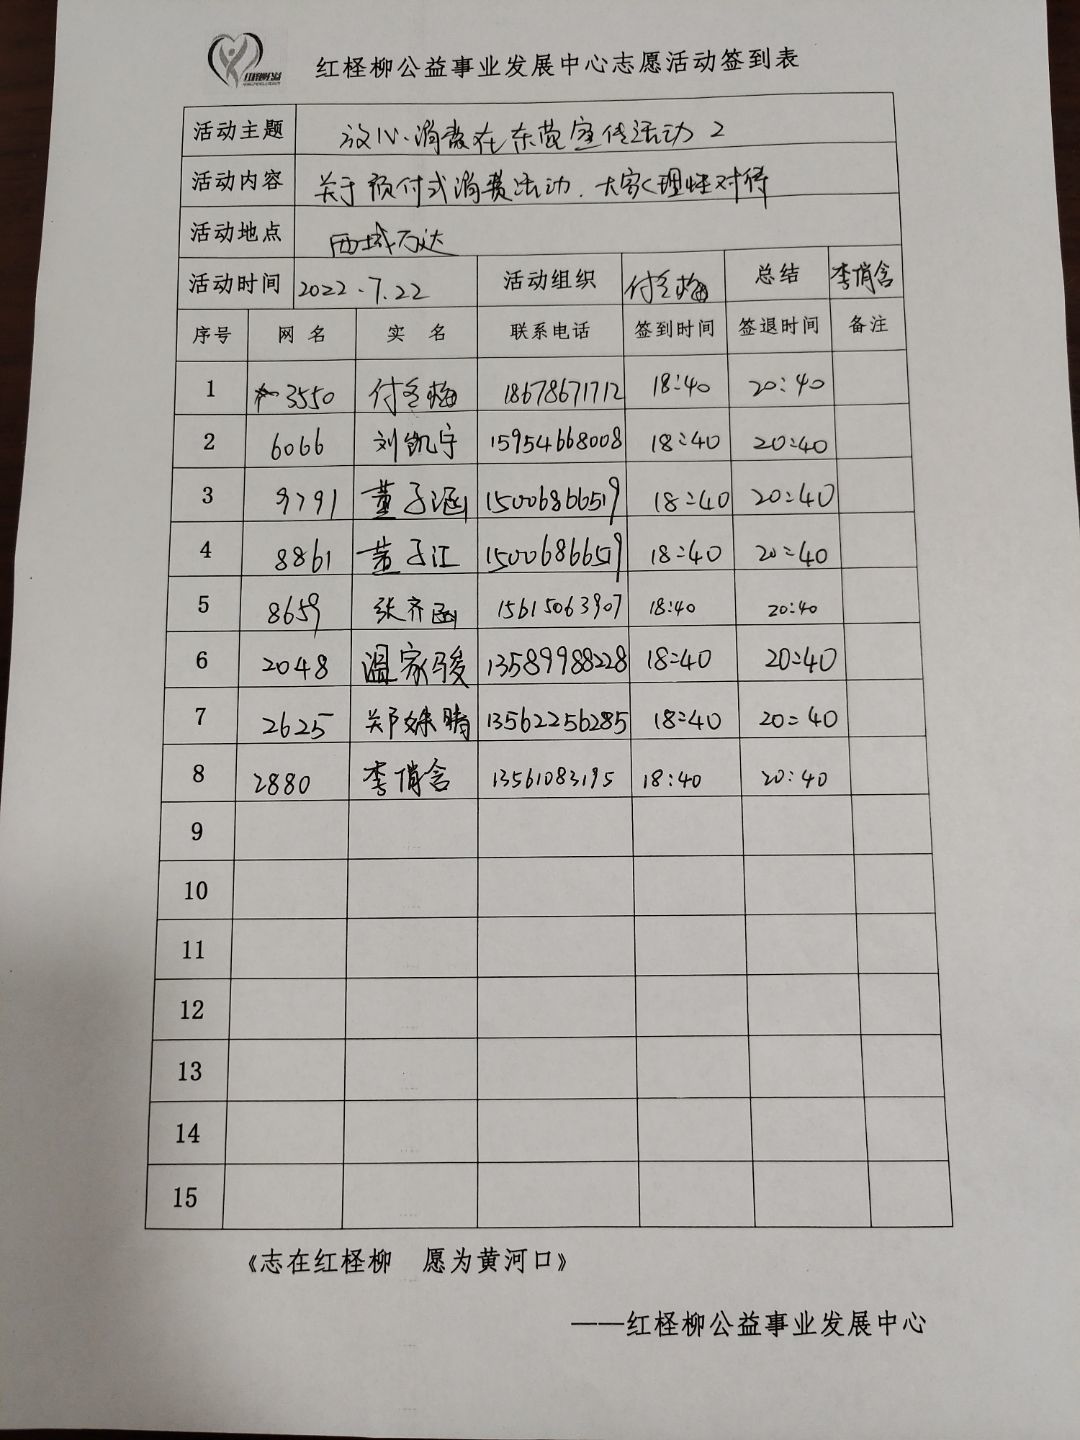 红柽柳公益事业发展中心志愿活动签到表
活动主题 放心消费在东营宣传活动2
活动内容 关于预付式消费活动.大家理性对待
活动地点 西城万达
活动时间 2022.7.22 活动组织 付冬梅 总结 李俏含
序号 网名 实名 联系电话 签到时间 签退时间 备注
1 3550 付冬梅 18678671712 18:40 20:40
2 6066 刘凯宁 15954668008 18:40 20:40
3 9791 董子涵 15006866519 18:40 20:40
4 8861 董子江 15006866519 18:40 20:40
5 8659 张齐函 15615063907 18:40 20:40
6 2048 温家骏 13589988228 18:40 20:40
7 2625 郑姝晴 13562256285 18:40 20:40
8 2880 李俏含 13561083195 18:40 20:40
9
10
11
12
13
14
15
《志在红柽柳 愿为黄河口》
——红柽柳公益事业发展中心